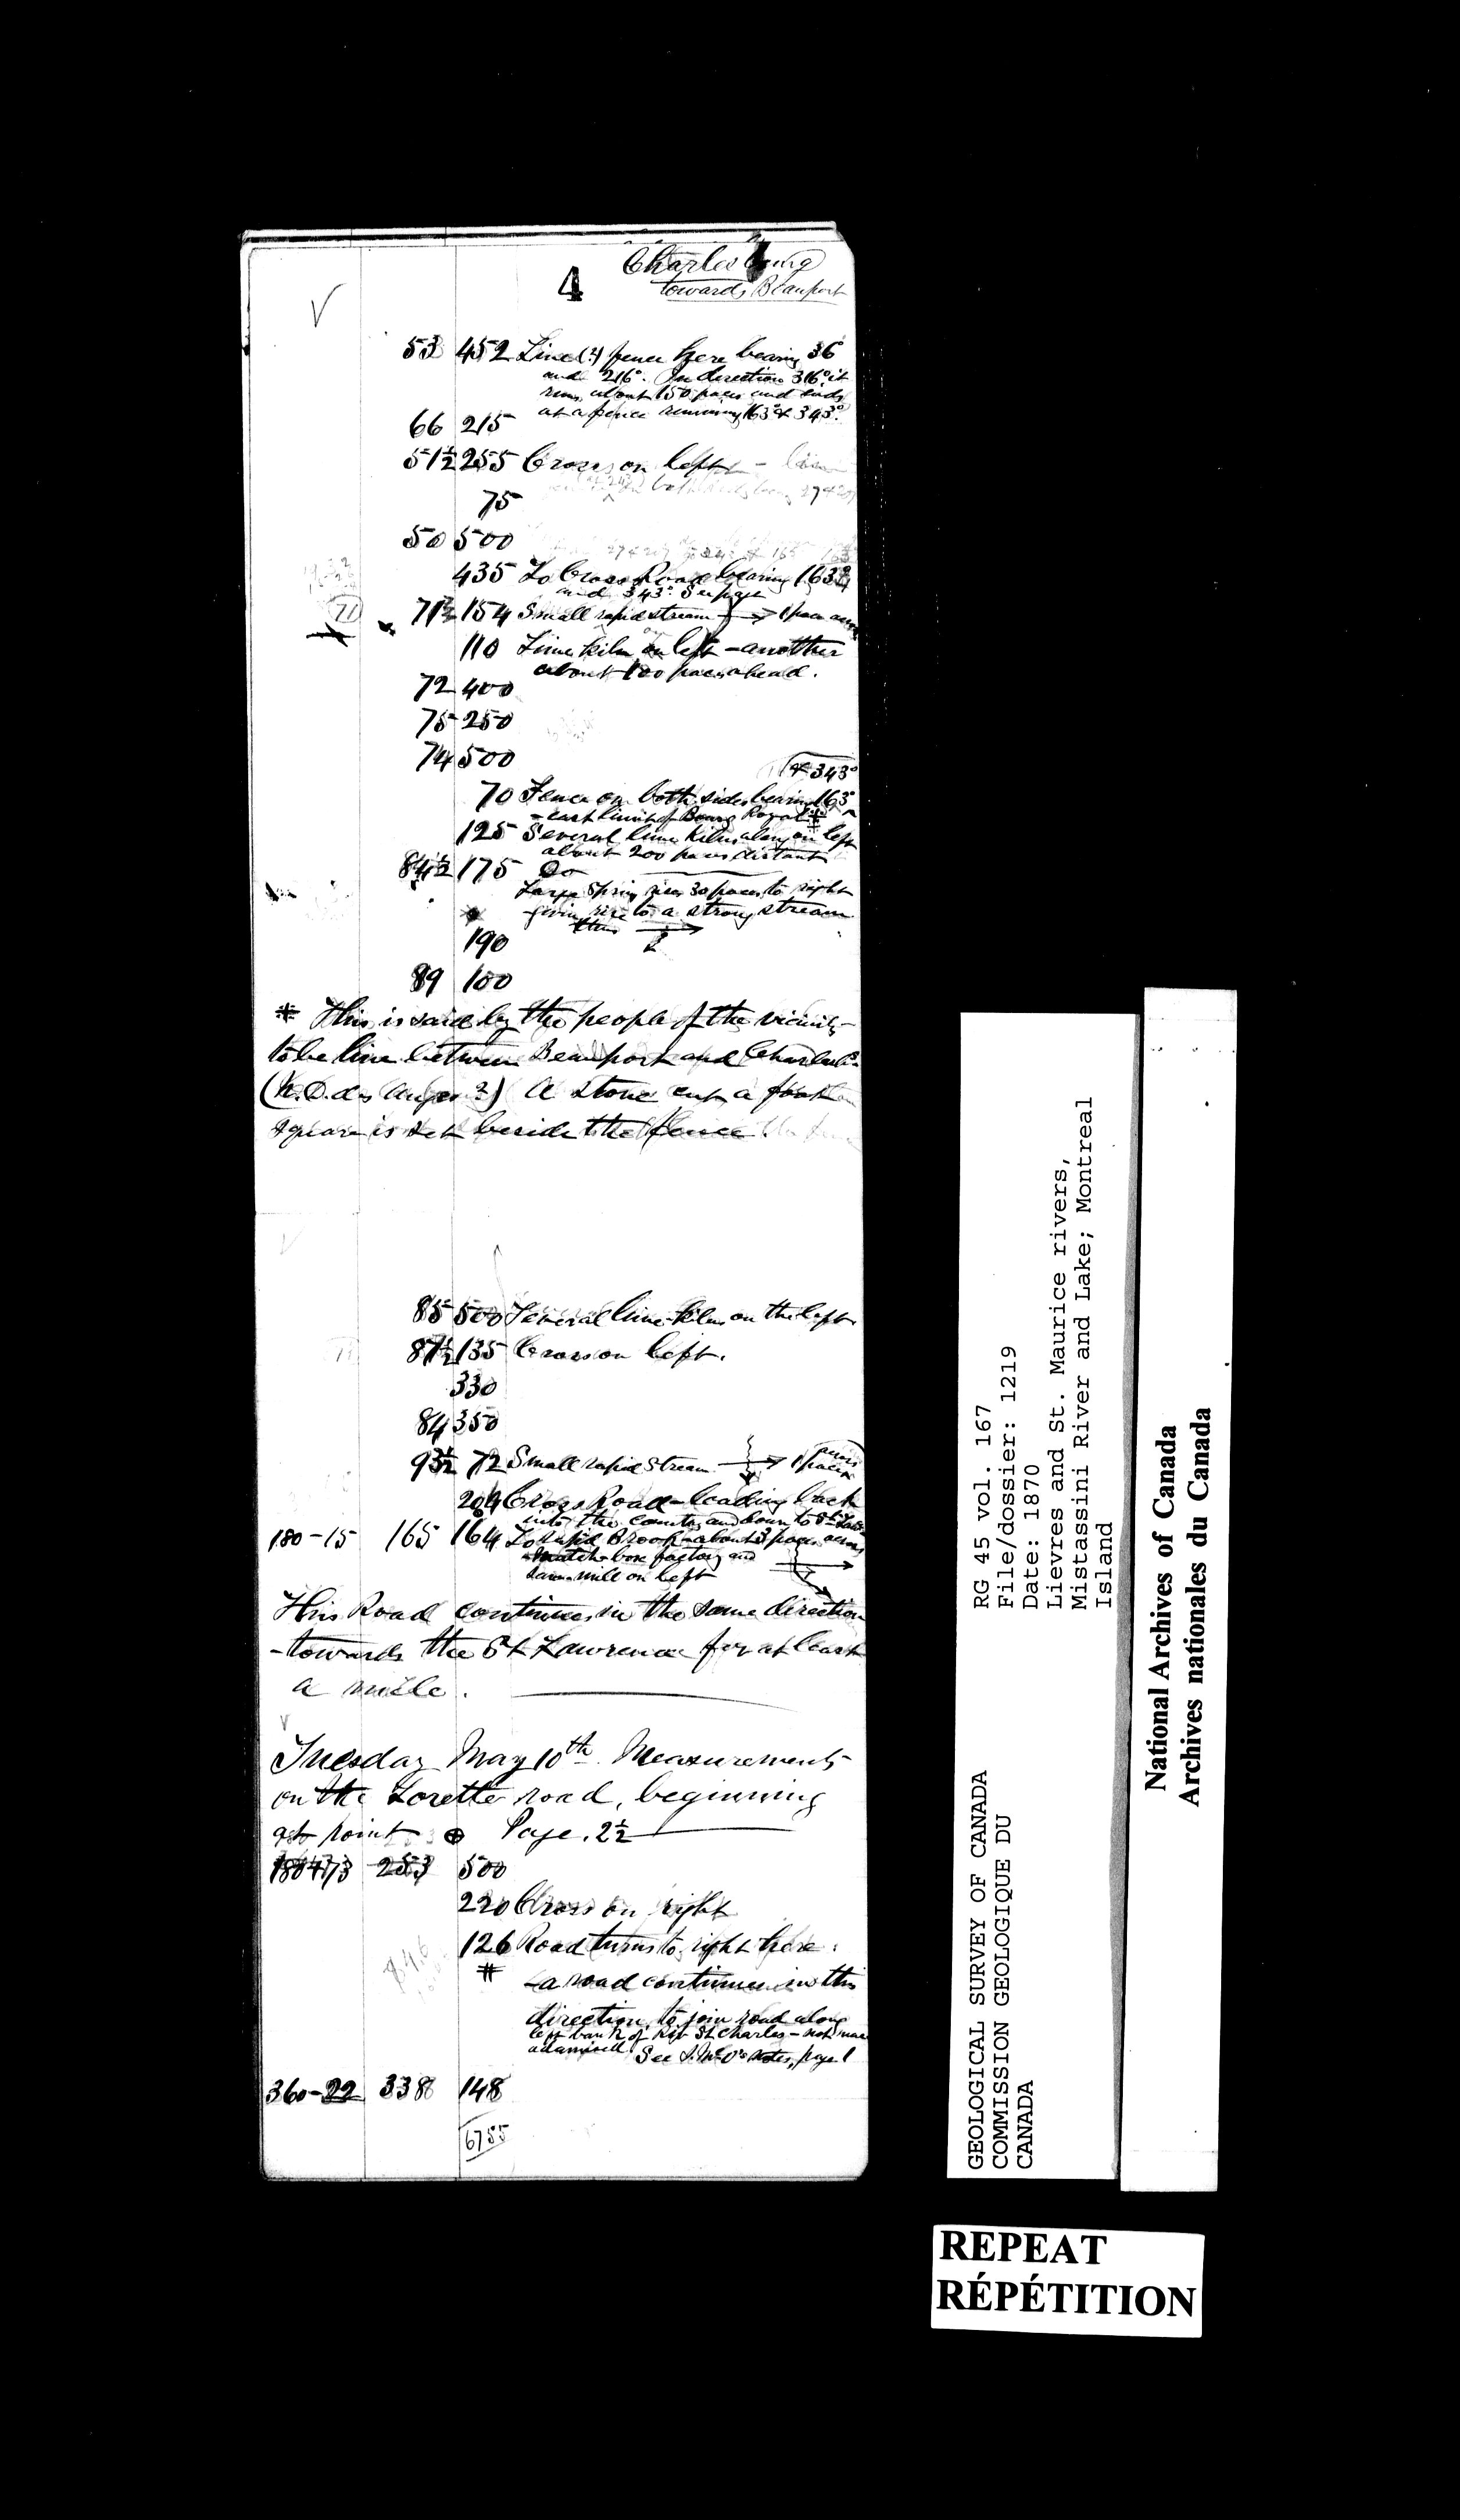 4
Charlesbourg
towards Beauport
53 452 Line (?) fence here bearing 36°
and 216°. In direction 316° it
runs about 150 paces and ends
at a fence running 163° & 343°.
66 215
51½ 255 Cross on left
75
50 500
435 To Cross Road bearing 163°
and 343°. See page
71
71½ 154 Small rapid stream → 1 pace across
110 Lime kiln on left – another
about 100 paces ahead.
72 400
75 250
74 500
& 343°
70 Fence on both sides bearing 163°
– east limit of Bourg Royal
125 Several lime kilns along on left
about 200 paces distant
84½ 175 Do
Large Spring rises 30 paces to right
giving rise to a strong stream
thus →
190
89 100
* This is said by the people of the vicinity
to be line between Beauport and
(N.D. des Anges?) A stone cut a foot
square is set beside the fence.
85 500 Several lime-kilns on the left
87½ 135 Cross on left.
330
84 350
93½ 72 Small rapid Stream → 1 pace
204 Cross Road – leading back
into the country and down to St
180–15 165 164 To rapid Brook – about 3 paces across
match-box factory and
saw-mill on left
This Road continues in the same direction
– towards the St Lawrence for at least
a mile.
Tuesday May 10th. Measurements
on the Lorette road, beginning
at point ⊕ Page. 2½
253 500
220 Cross on right
126 Road turns to right here.
# – a road continues in this
direction, to join road along
left bank of St Charles – not mac
adamised. See notes, page 1
360–22 338 148
6755
RG 45 vol. 167
File/dossier: 1219
Date: 1870
Lievres and St. Maurice rivers,
Mistassini River and Lake; Montreal
Island
GEOLOGICAL SURVEY OF CANADA
COMMISSION GEOLOGIQUE DU
CANADA
National Archives of Canada
Archives nationales du Canada
REPEAT
RÉPÉTITION